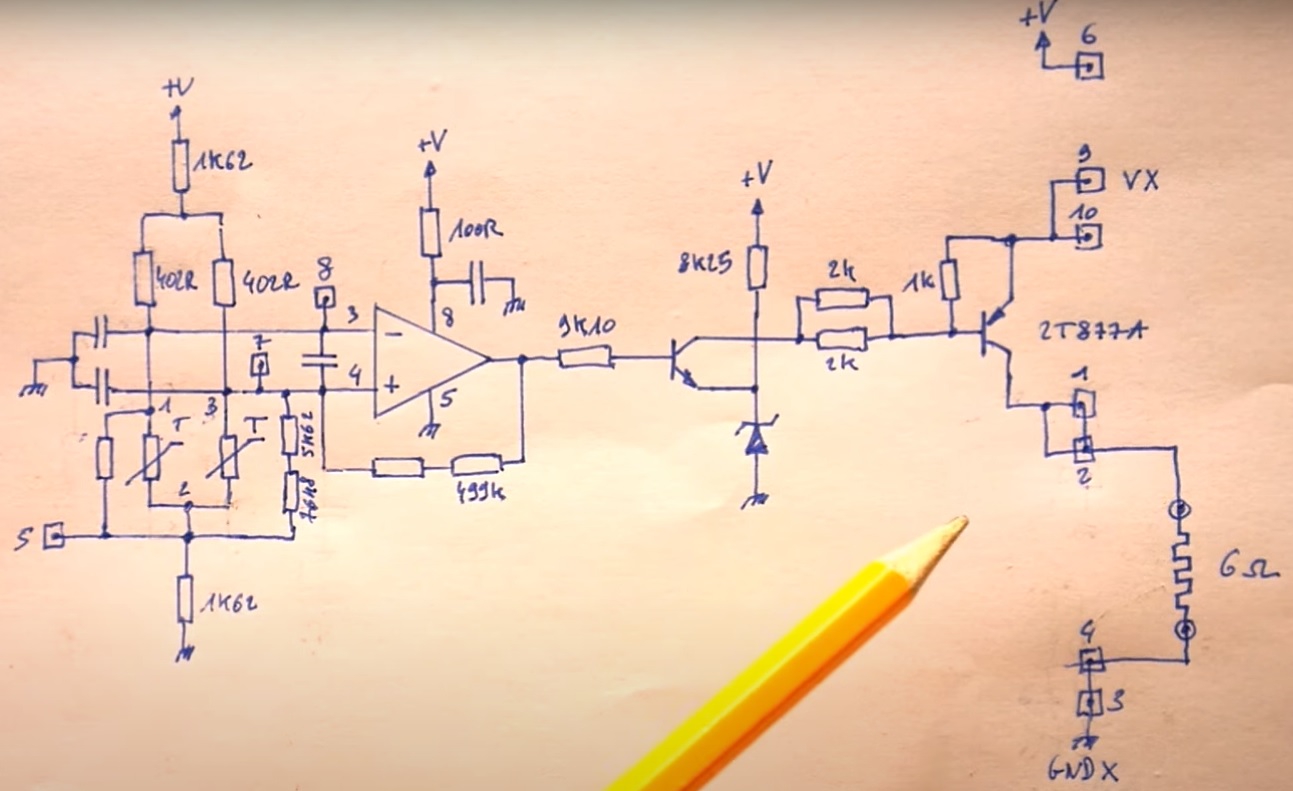 +V
6
+V
1K62
+V
9
VX
+V
10
100R
402R
402R
8
8K25
2k
1k
3
−
8
2T877A
7
9K10
2k
4
+
5
1
1
3
T
T
5K62
2
2
499k
5
6Ω
1K62
4
3
GNDX